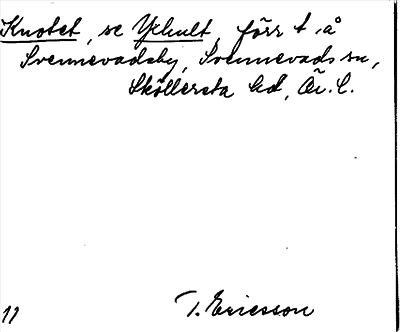 Knotet, se Yxhult, förr t. å
Svennevadsby, Svennevads sn,
Sköllersta hd, Ör. l.
T. Ericsson
11